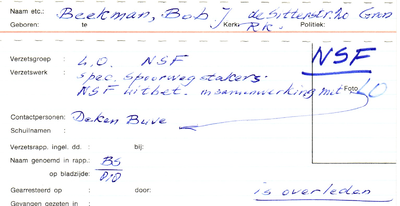 Naam etc.: Beekman, Bob J. de Sitterstr. Gron
Geboren: te Kerk: R.K. Politiek:
Verzetsgroep : L.O. NSF NSF
Verzetswerk : spec. spoorwegstakers.
NSF uitbet. in samenwerking met LO
Foto
Contactpersonen: Deken Buve
Schuilnaam :
Verzetsrapp. ingel. dd. : bij:
Naam genoemd in rapp.: BS
op bladzijde:
Gearresteerd op : door: is overleden
Gevangen gezeten in :